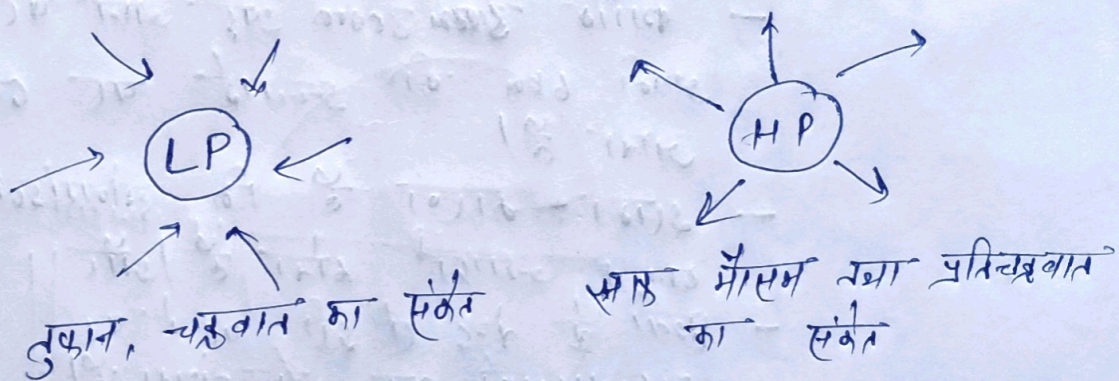 LP
HP
तुफान, चक्रवात का संकेत
साफ मौसम तथा प्रतिचक्रवात
का संकेत